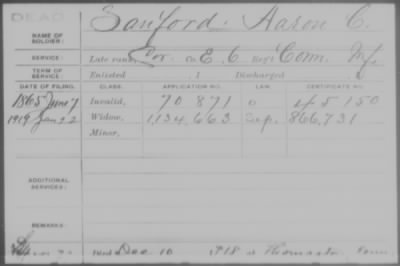 DEAD
NAME OF SOLDIER: Sanford. Aaron C.
SERVICE: Late rank, Cor. Co. E, 6 Reg't Conn. Inf.
TERM OF SERVICE: Enlisted , 1 Discharged
DATE OF FILING. CLASS. APPLICATION NO. LAW. CERTIFICATE NO.
1865 June 7 Invalid, 70 871 45150
1919 Jan 22 Widow, 1,134,663 866,731
Minor,
ADDITIONAL SERVICES:
REMARKS:
Died Dec 10 1918 at Thomaston Conn